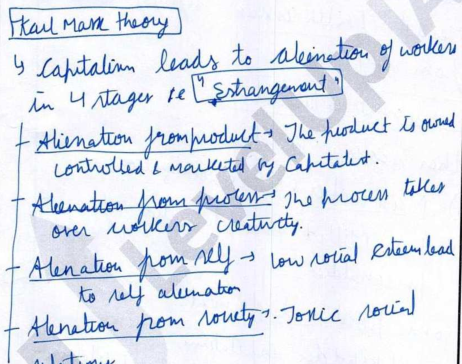 Karl Marx theory
↳ Capitalism leads to aleination of workers
in 4 stages ie "Estrangement"
- Alienation from product → The product is owned
controlled & marketed by Capitalist.
- Alienation from process → The process takes
over workers creativity.
- Alenation from self → low social esteem lead
to self alienation
- Alenation from society → Toxic social
relations
LevelUpIA